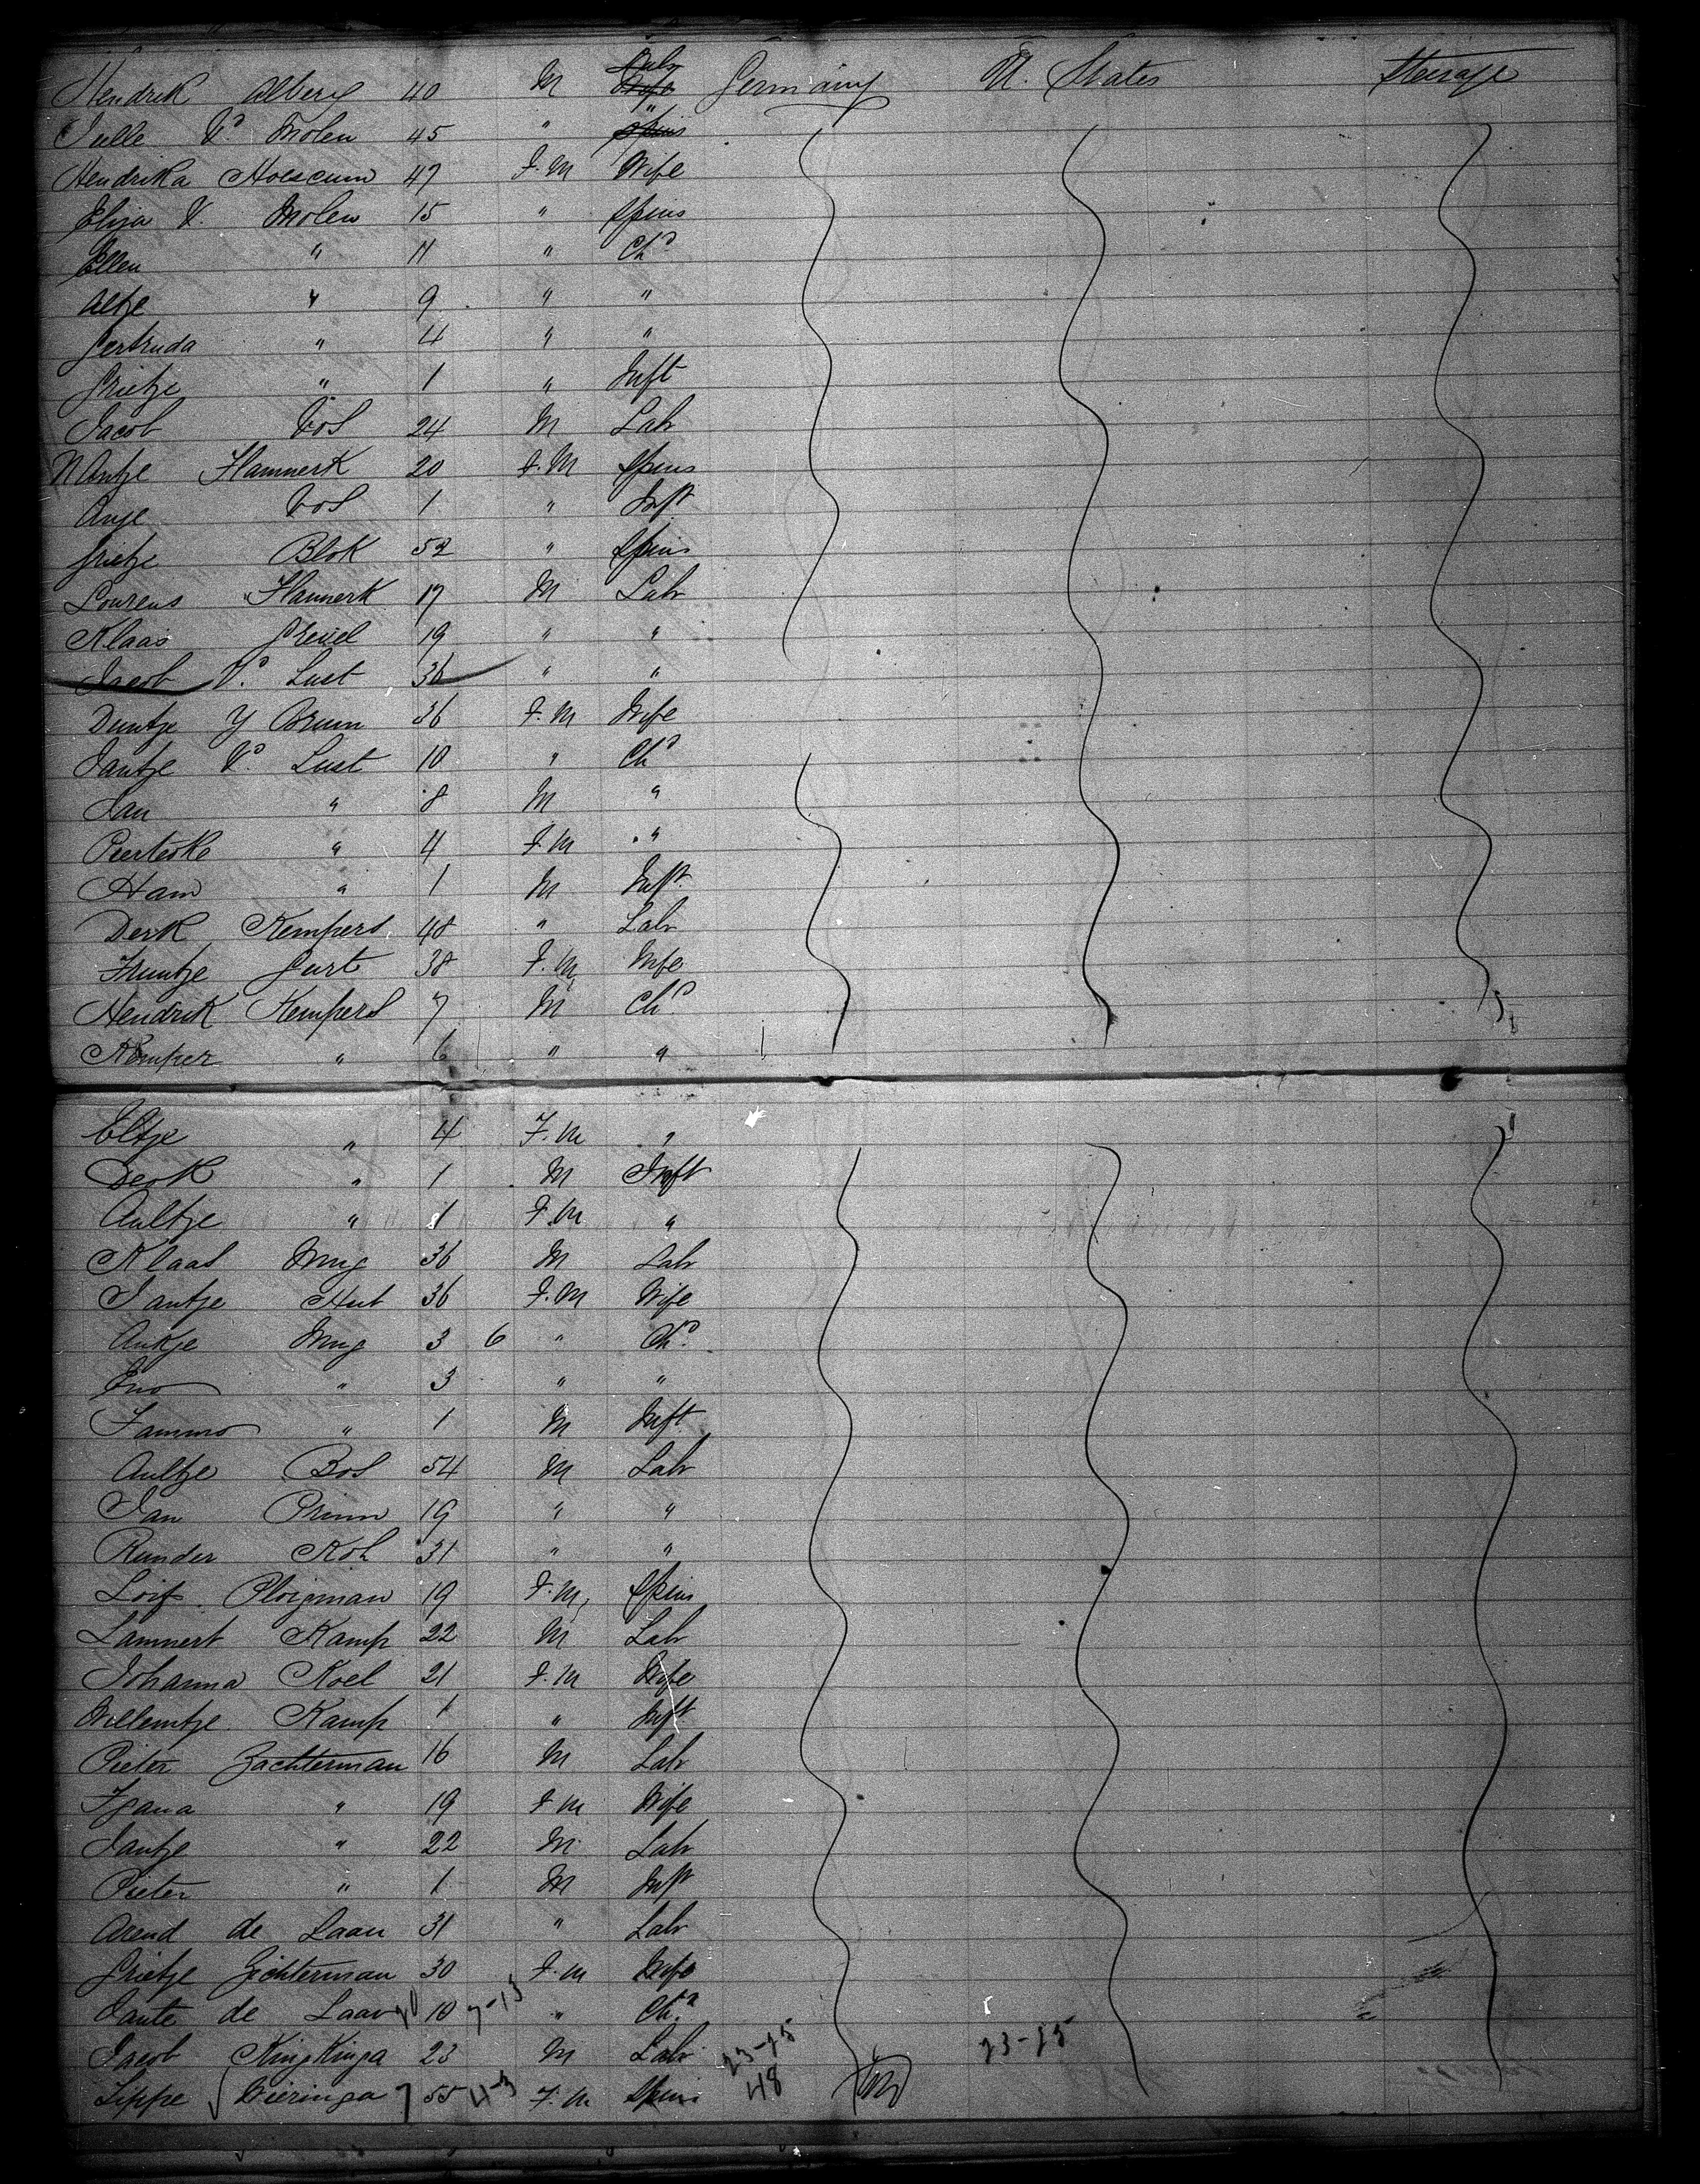 Hendrik Alberg 40 M Labr Germany U. States Steerage
Jelle Vd Molen 45 " "
Hendrika Hoescum 47 F.M Wife
Eliza V. Molen 15 " Spins
Ellen " 11 " Chd
Altje " 9 " "
Gertruda " 4 " "
Grietje " 1 " Inft
Jacob Vos 24 M Labr
Mantje Hammerk 20 F.M Spins
Anje Vos 1 " Inft
Grietje Blok 52 " Spins
Lourens Hammerk 17 M Labr
Klaas Grevel 19 " "
Jacob Vd Lust 36 " "
Duntje Y Bruin 36 F.M Wife
Jantje Vd Lust 10 " Chd
Jan " 8 M "
Peerteske " 4 F.M "
Ham " 1 M Inft
Derk Kempers 48 " Labr
Truntje Gurt 38 F.M Wife
Hendrik Kempers 7 M Chd
Kemper " 6 " "
Eltje " 4 F.M "
Derk " 1 M Inft
Aultje " 1 F.M "
Klaas Mug 36 M Labr
Jantje Hut 36 F.M Wife
Ankje Mug 3 6 " Chd
Eno " 3 " "
Tammo " 1 M Inft
Aultje Bos 54 M Labr
Jan Pruim 19 " "
Reinder Kok 31 " "
Ploigman 19 F.M Spins
Lammert Kamp 22 M Labr
Johanna Koel 21 F.M Wife
Willemtje Kamp 1 " Inft
Pieter Zachterman 16 M Labr
" 19 F.M Wife
Jantje " 22 M Labr
Pieter " 1 M Inft
Arend de Laan 31 " Labr
Grietje Zichterman 30 F.M Wife
Jante de Laan 10 7-13 " Chd
Jacob KingKinga 23 M Labr 23-25 23-25
Sippe Wieringa 7 55 11-3 F.M Spins 48